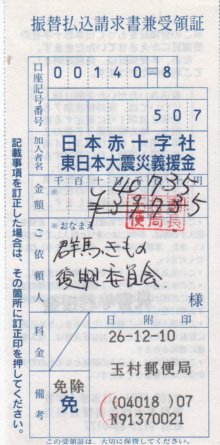 振替払込請求書兼受領証
口座記号番号
00140=8
507
加入者名
日本赤十字社
東日本大震災義援金
金額
千百十万千百十円
※
ご依頼人
※おなまえ
群馬きもの
復興委員会
様
料金
日附印
26-12-10
玉村郵便局
備考
免除
免
(04018)07
N91370021
記載事項を訂正した場合は、その箇所に訂正印を押してください。
この受領証は、大切に保管してください。